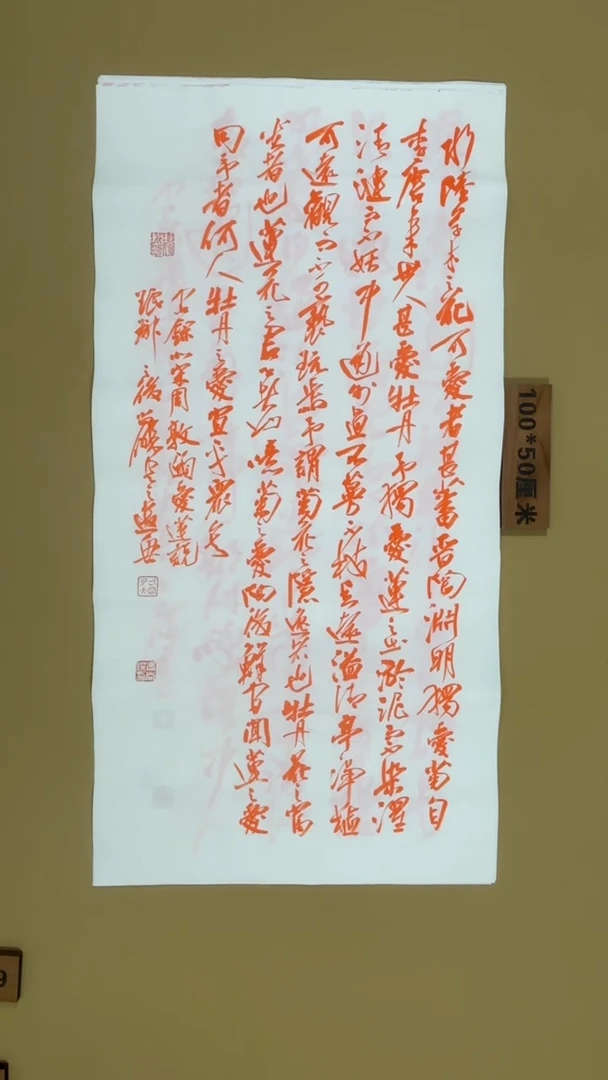 水陸草木之花可愛者甚蕃晋陶淵明獨愛菊自
李唐來世人甚愛牡丹予獨愛蓮之出淤泥而不染濯
清漣而不妖中通外直不蔓不枝香遠益清亭亭淨植
可遠觀而不可褻玩焉予謂菊花之隱逸者也牡丹花之富
貴者也蓮花之君子者也噫菊之愛陶後鮮有聞蓮之愛
同予者何人牡丹之愛宜乎衆矣
宋周敦頤愛蓮説
100*50厘米
9